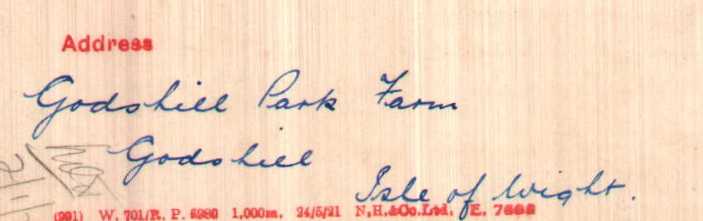 Address
Godshill Park Farm
Godshill
Isle of Wight.
(991) W. 701/R. P. 6980 1,000m. 24/5/21 N.H.&Co.Ltd. E.